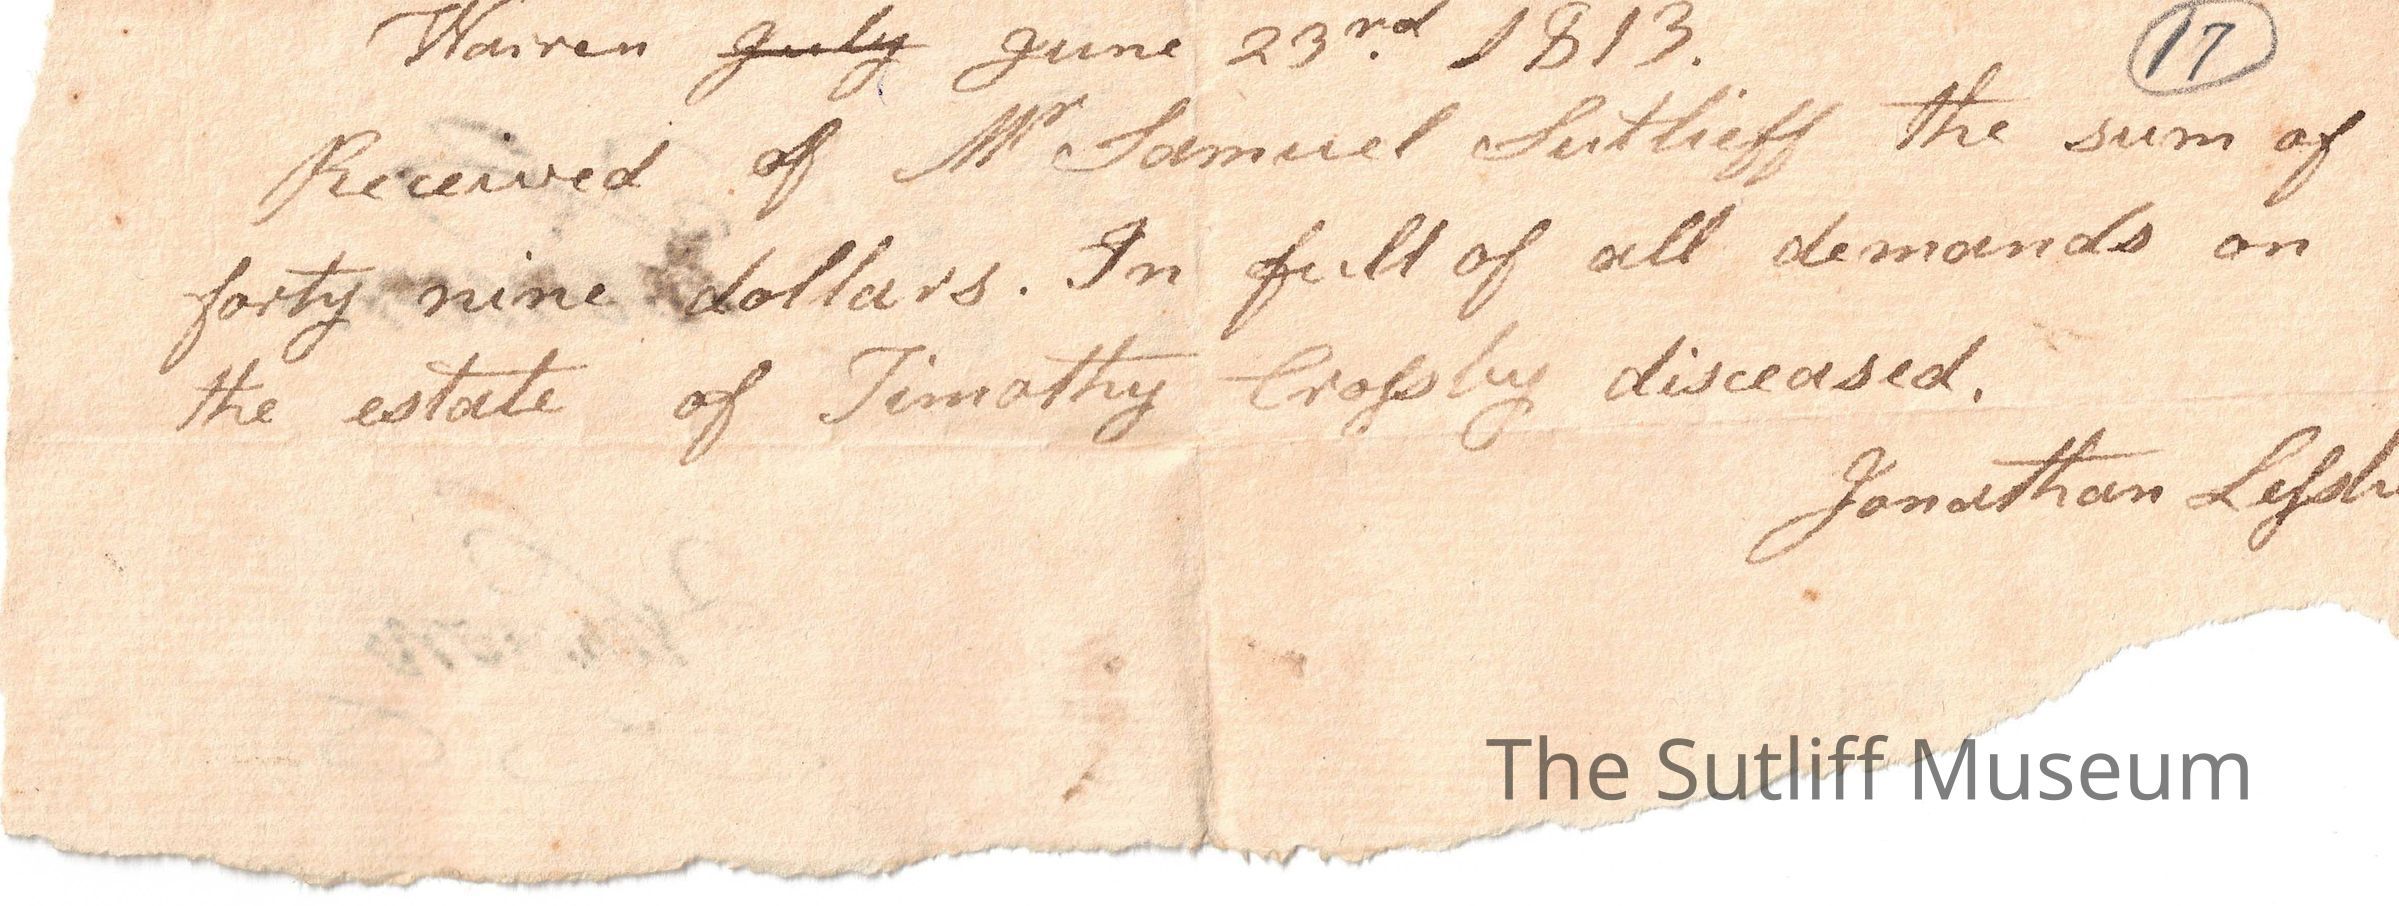 Warren ~~July~~ June 23rd. 1813.
17
Received of Mr Samuel Sutlieff the sum of
forty nine dollars. In full of all demands on
the estate of Timothy Crossby disceased.
Jonathan
The Sutliff Museum